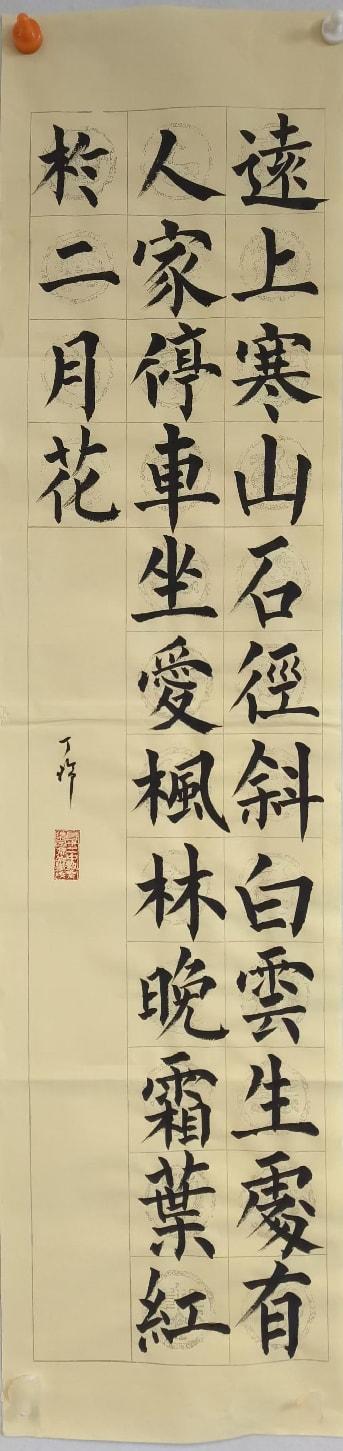 遠上寒山石徑斜白雲生處有
人家停車坐愛楓林晚霜葉紅
於二月花